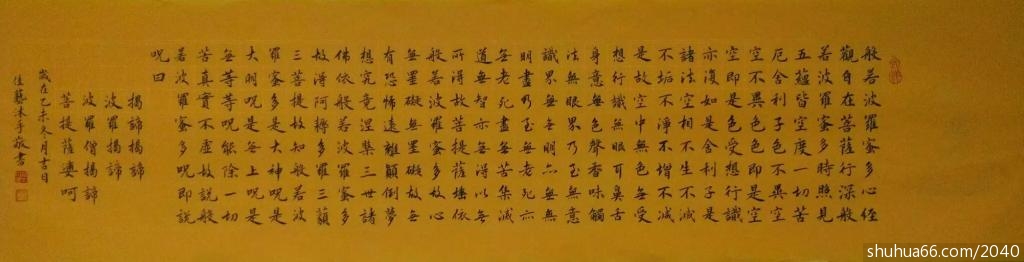 般若波羅蜜多心経
觀自在菩薩行深般
若波羅蜜多時照見
五蘊皆空度一切苦
厄舍利子色不異空
空不異色色即是空
空即是色受想行識
亦復如是舍利子是
諸法空相不生不滅
不垢不淨不增不減
是故空中無色無受
想行識無眼耳鼻舌
身意無色聲香味觸
法無眼界乃至無意
識界無無明亦無無
明盡乃至無老死亦
無老死盡無苦集滅
道無智亦無得以無
所得故菩提薩埵依
般若波羅蜜多故心
無罣礙無罣礙故無
有恐怖遠離顛倒夢
想究竟涅槃三世諸
佛依般若波羅蜜多
故得阿耨多羅三藐
三菩提故知般若波
羅蜜多是大神呪是
大明呪是無上呪是
無等等呪能除一切
苦真實不虛故說般
若波羅蜜多呪即說
呪曰
揭諦揭諦
波羅揭諦
波羅僧揭諦
菩提薩婆呵
歲在乙未冬月吉日
佳藝沐手敬書
shuhua66.com/2040